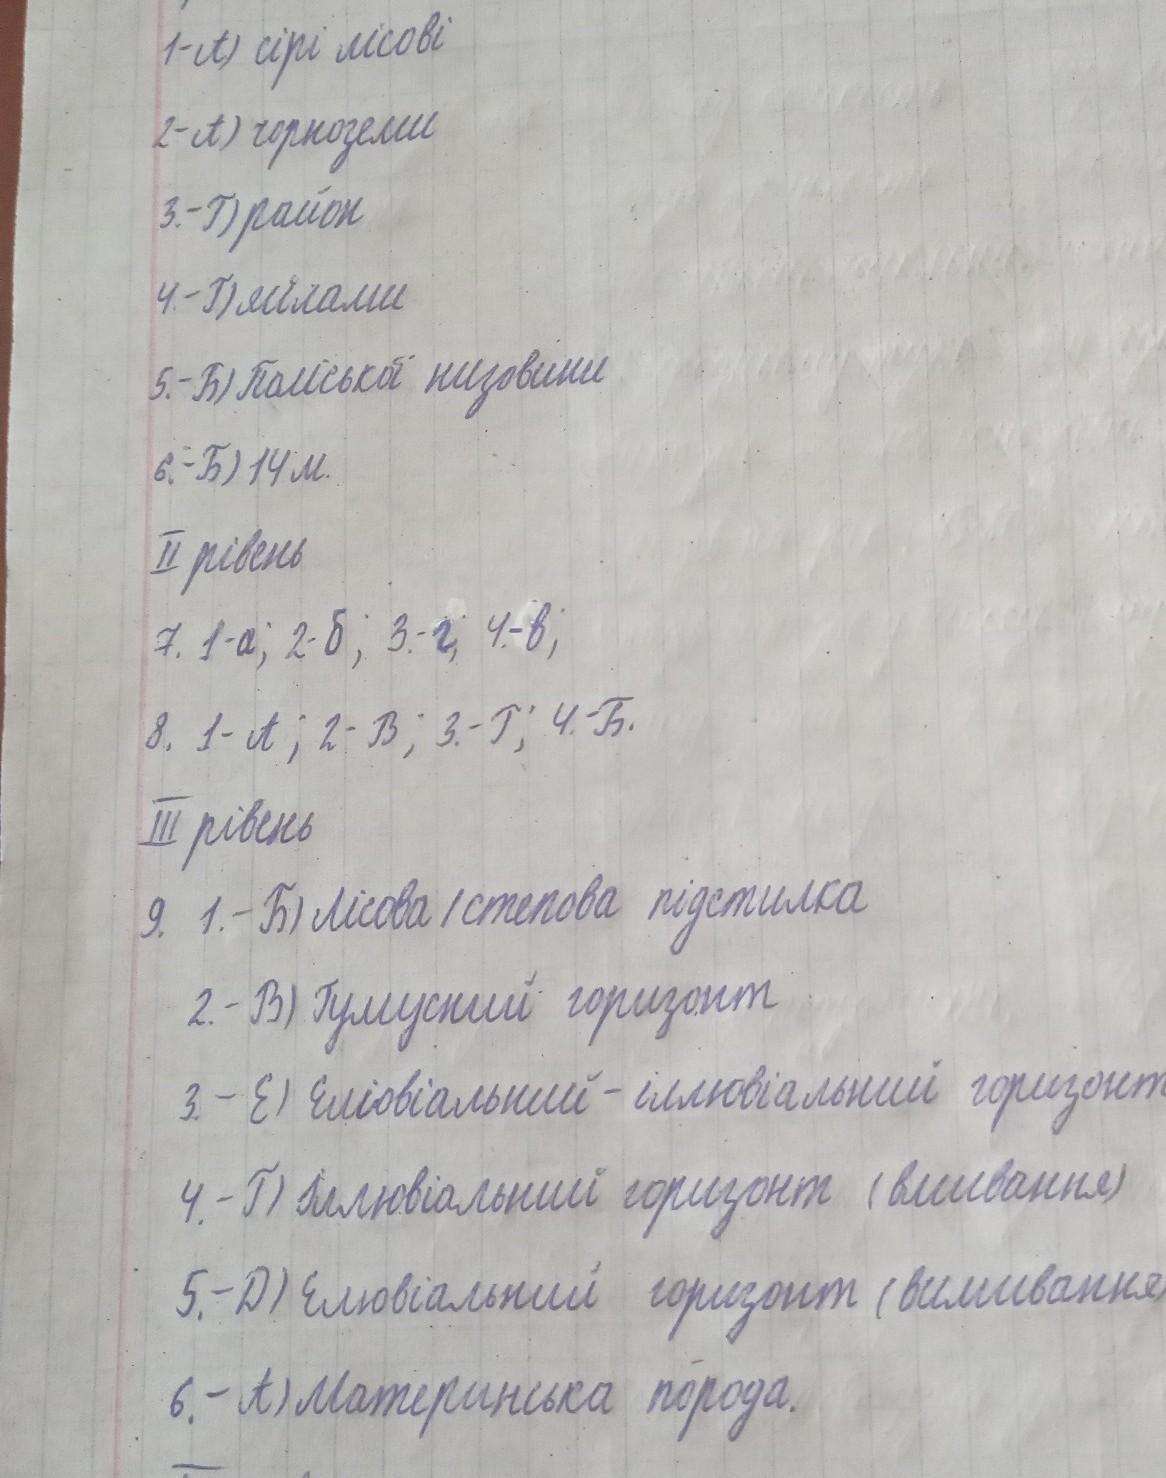 1-А) сірі лісові
2-А) чорноземи
3.-Г) район
4.-Г) яйлами
5.-Б) Поліської низовини
6.-Б) 14 м.
ІІ рівень
7. 1-а; 2-б; 3.-г; 4.-в;
8. 1-А; 2-В; 3.-Г; 4.-Б.
ІІІ рівень
9. 1.-Б) Лісова/степова підстилка
2.-В) Гумусний горизонт
3.-Е) Еліовіальний-іллювіальний горизонт
4.-Г) Іллювіальний горизонт (вмивання)
5.-Д) Елювіальний горизонт (вимивання)
6.-А) Материнська порода.